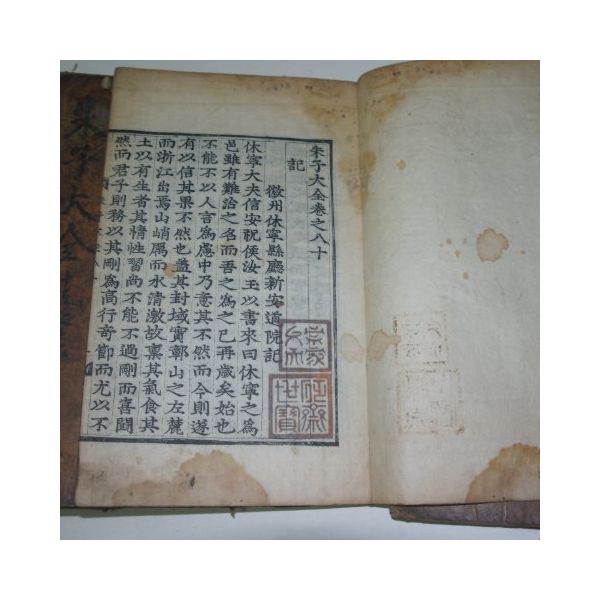 朱子大全卷之八十
記
徽州休寧縣廳新安道院記
休寧大夫信安祝侯汝玉以書來曰休寧之爲
邑雖有難治之名而吾之爲之已再歲矣始也
不能不以人言爲慮中乃意其不然而今則遂
有以信其果不然也蓋其封域實鄣山之左麓
而浙江出焉山峭厲而水清激故稟其氣食其
土以有生者其情性習尚不能不過剛而喜鬪
然而君子則務以其剛爲高行奇節而尤以不
朱子大全
世寶